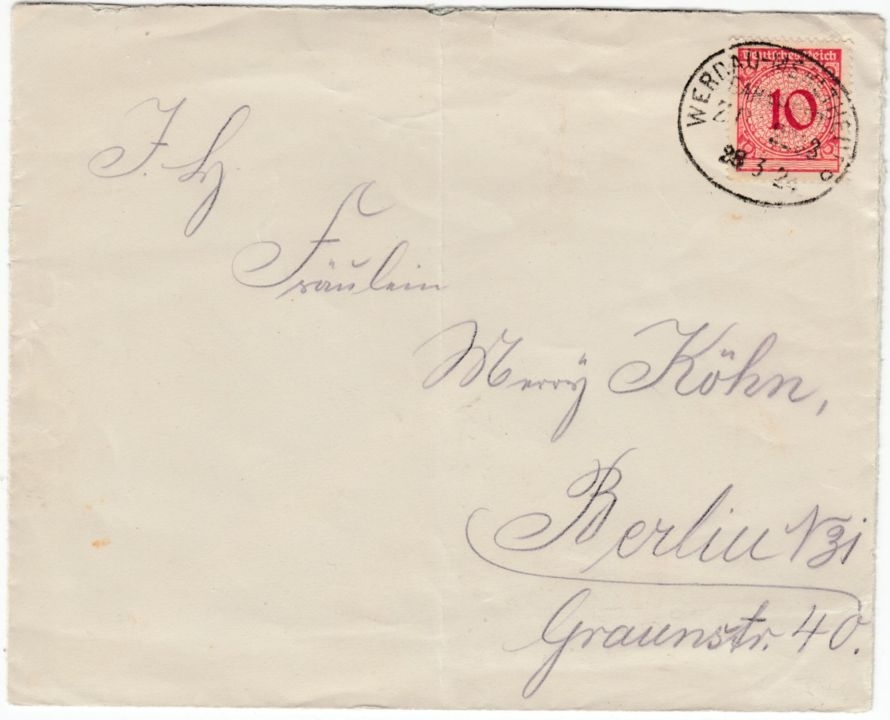 Deutsches Reich
10
WERDAU
BAHN
Z
3
28 3 24
J. H
Fräulein
Merry Köhn,
Berlin N 31
Graunstr. 40.